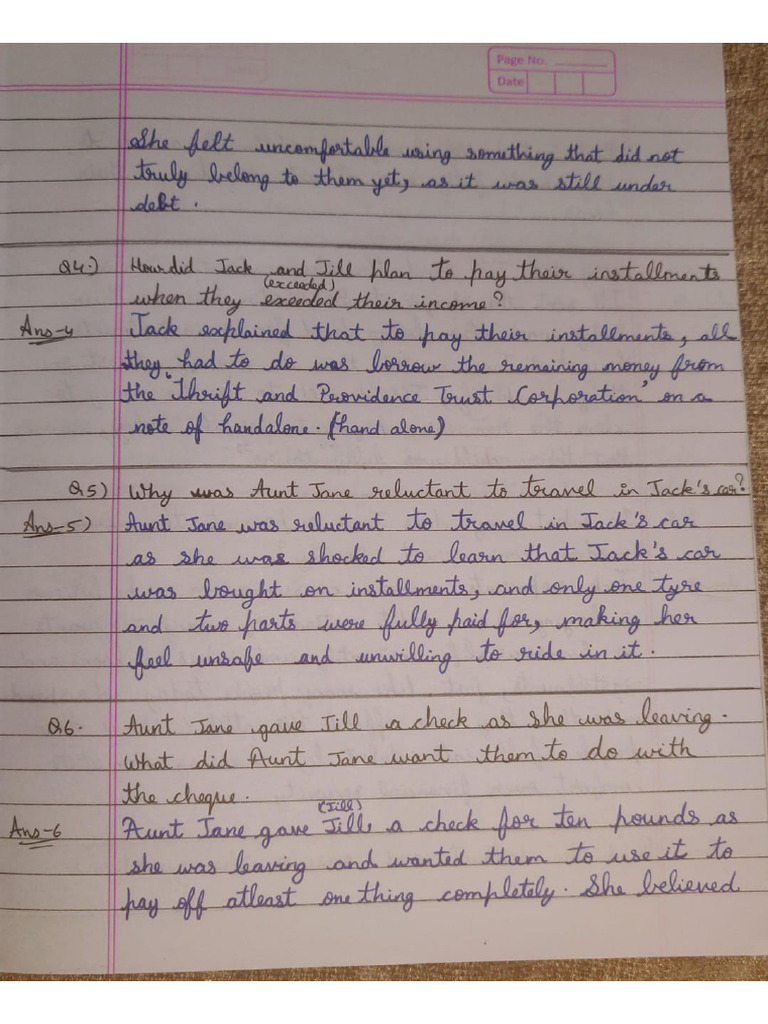 Page No.
Date
She felt uncomfortable using something that did not
truly belong to them yet, as it was still under
debt.
Q4.) How did Jack and Jill plan to pay their installments
(exceeded)
when they exeeded their income?
Ans-4 Jack explained that to pay their installments, all
they had to do was borrow the remaining money from
the "Thrift and Providence Trust Corporation" on a
note of handalone. (hand alone)
Q5) Why was Aunt Jane reluctant to travel in Jack's car?
Ans-5) Aunt Jane was reluctant to travel in Jack's car
as she was shocked to learn that Jack's car
was bought on installments, and only one tyre
and two parts were fully paid for, making her
feel unsafe and unwilling to ride in it.
Q6. Aunt Jane gave Jill a check as she was leaving.
What did Aunt Jane want them to do with
the cheque.
(Jill)
Ans-6 Aunt Jane gave Jill, a check for ten pounds as
she was leaving and wanted them to use it to
pay off atleast one thing completely. She believed